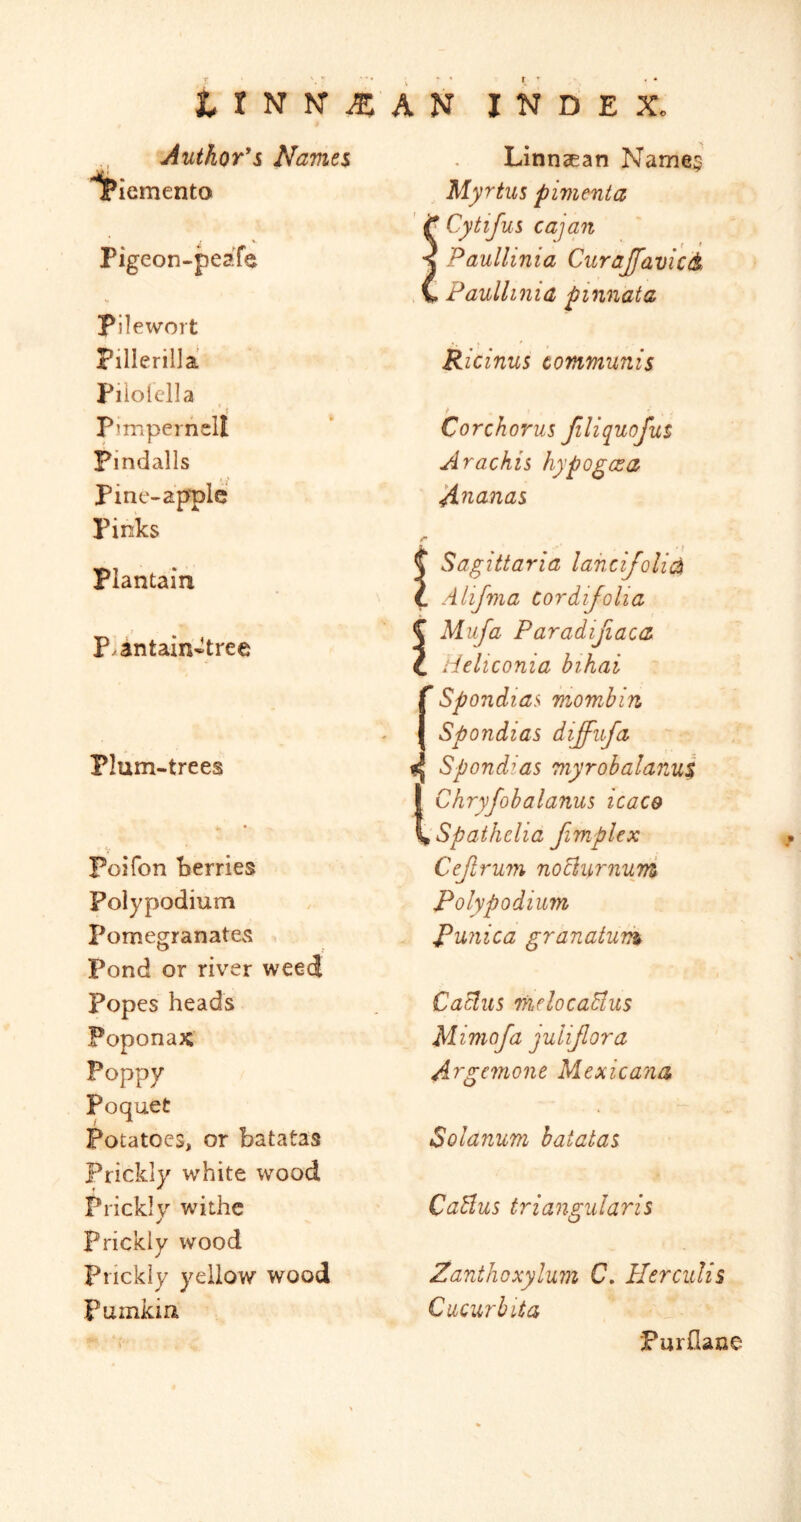 LINNÆAN INDEX.
Author's Names Linnæan Names
Piemento Myrtus pimenta
Cytiſus cajan
Pigeon-peaſe Paullinia Curaſſavica
Paullinia pinnata
Pilewort
Pillerilla Ricinus communis
Piloſella
Pimpernell Corchorus ſiliquoſus
Pindalls Arachis hypogæa
Pine-apple Ananas
Pinks
Sagittaria lancifolia
Plantain
Aliſma cordifolia
Muſa Paradiſiaca
Plantain-tree
Heliconia bihai
Spondias mombin
Spondias diffuſa
Plum-trees Spondias myrobalanus
Chryſobalanus icaco
Spathelia ſimplex
Poiſon berries Ceſtrum nocturnum
Polypodium Polypodium
Pomegranates Punica granatum
Pond or river weed
Popes heads Cactus melocactus
Poponax Mimoſa juliflora
Poppy Argemone Mexicana
Poquet
Potatoes, or batatas Solanum batatas
Prickly white wood
Prickly withe Cactus triangularis
Prickly wood
Prickly yellow wood Zanthoxylum C. Herculis
Pumkin Cucurbita
Purſlane